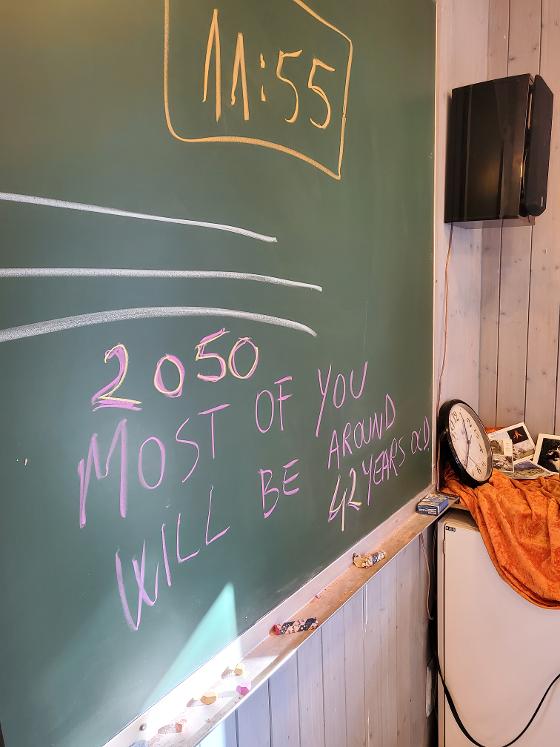 11:55
2050
MOST OF YOU
WILL BE AROUND
42 YEARS OLD